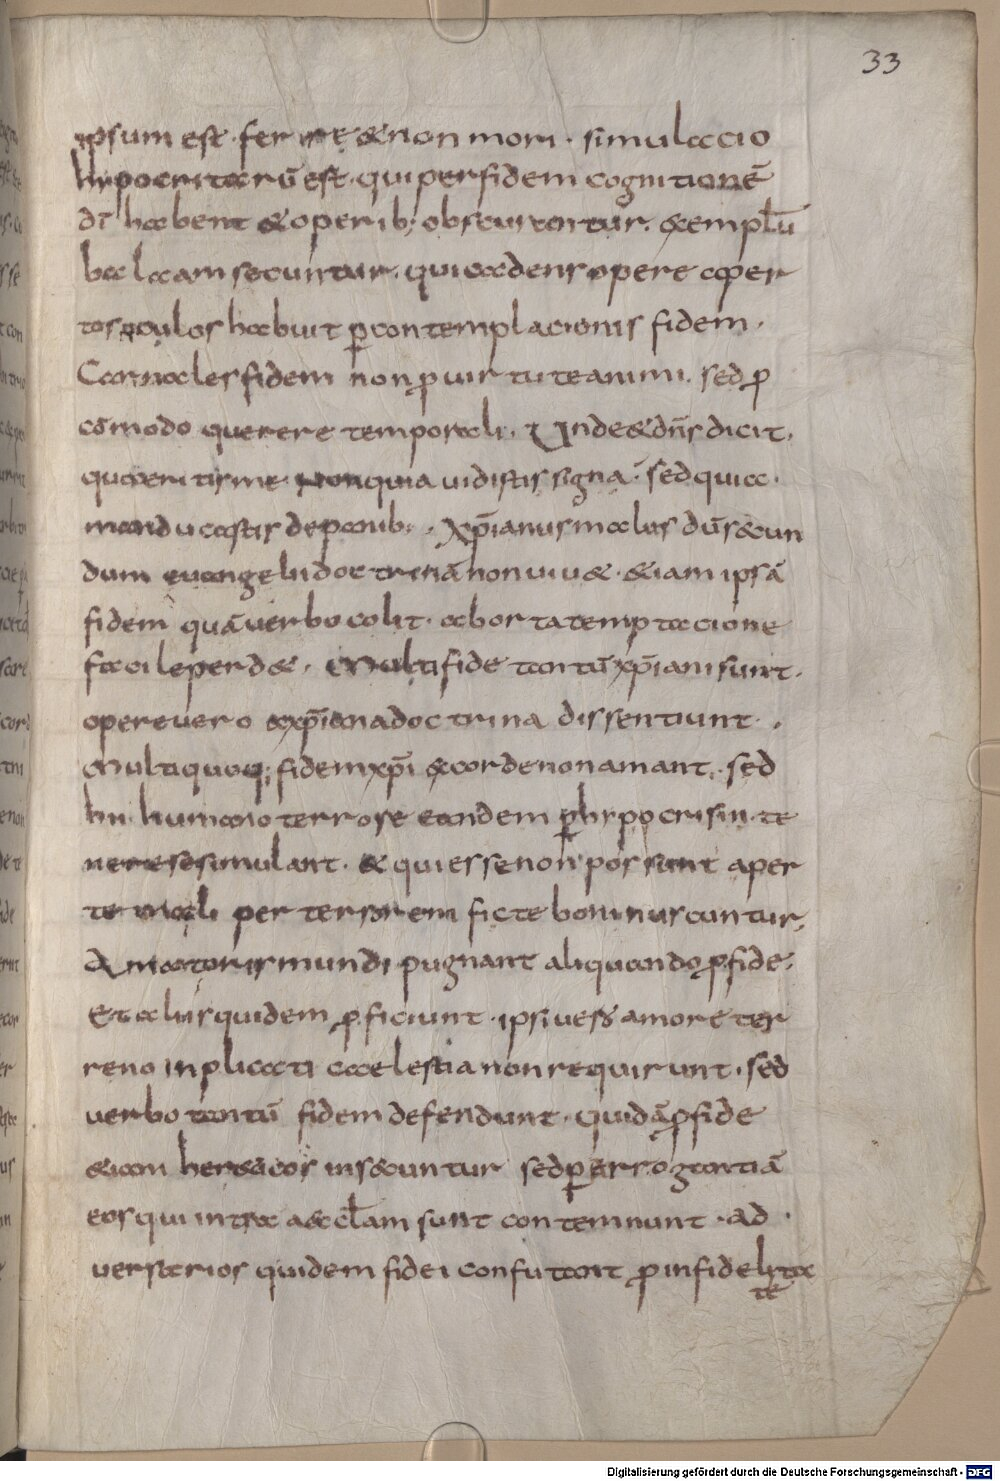 33
ipsum est ferire & non mori. simulacio
hipocritarū est. qui per fidem cognitionē
dī habent & operib; obscurantur. exemplū
balaam secuntur. qui cadens opere aper
tos oculos habuit p contemplacionis fidem.
Carnales fidem non p uirtute animi. sed p
cōmodo querere temporali. Unde & dn̄s dicit.
queritis me. non quia uidistis signa. sed quia.
manducastis de panib;. xp̄ianus malus dū s&cun
dum euangelii doctrinā non uiu&. &iam ipsā
fidem quā uerbo colit. aborta temptacione
facile perd&. Multi fide tantū xp̄iani sunt.
opere uero a xp̄iana doctrina dissentiunt.
Multi quoq; fidem xp̄i ex corde non amant. sed
hii humano terrore eandem p hipocrisin te
nere se simulant. & qui esse non possunt aper
te mali per terrorem ficte boni nuscuntur.
Amatoris mundi pugnant aliquando p fide.
Et aliis quidem p ficiunt. ipsi uero amore ter
reno inplicati caelestia non requirunt. sed
uerbo tantū fidem defendunt. quidā p fide
&iam her&icos ins&cuntur sed p arrogantiā
eos qui intra aeccl̄am sunt contemnunt. ad
uersarios quidem fidei confutant p infidelita
te
Digitalisierung gefördert durch die Deutsche Forschungsgemeinschaft - DFG